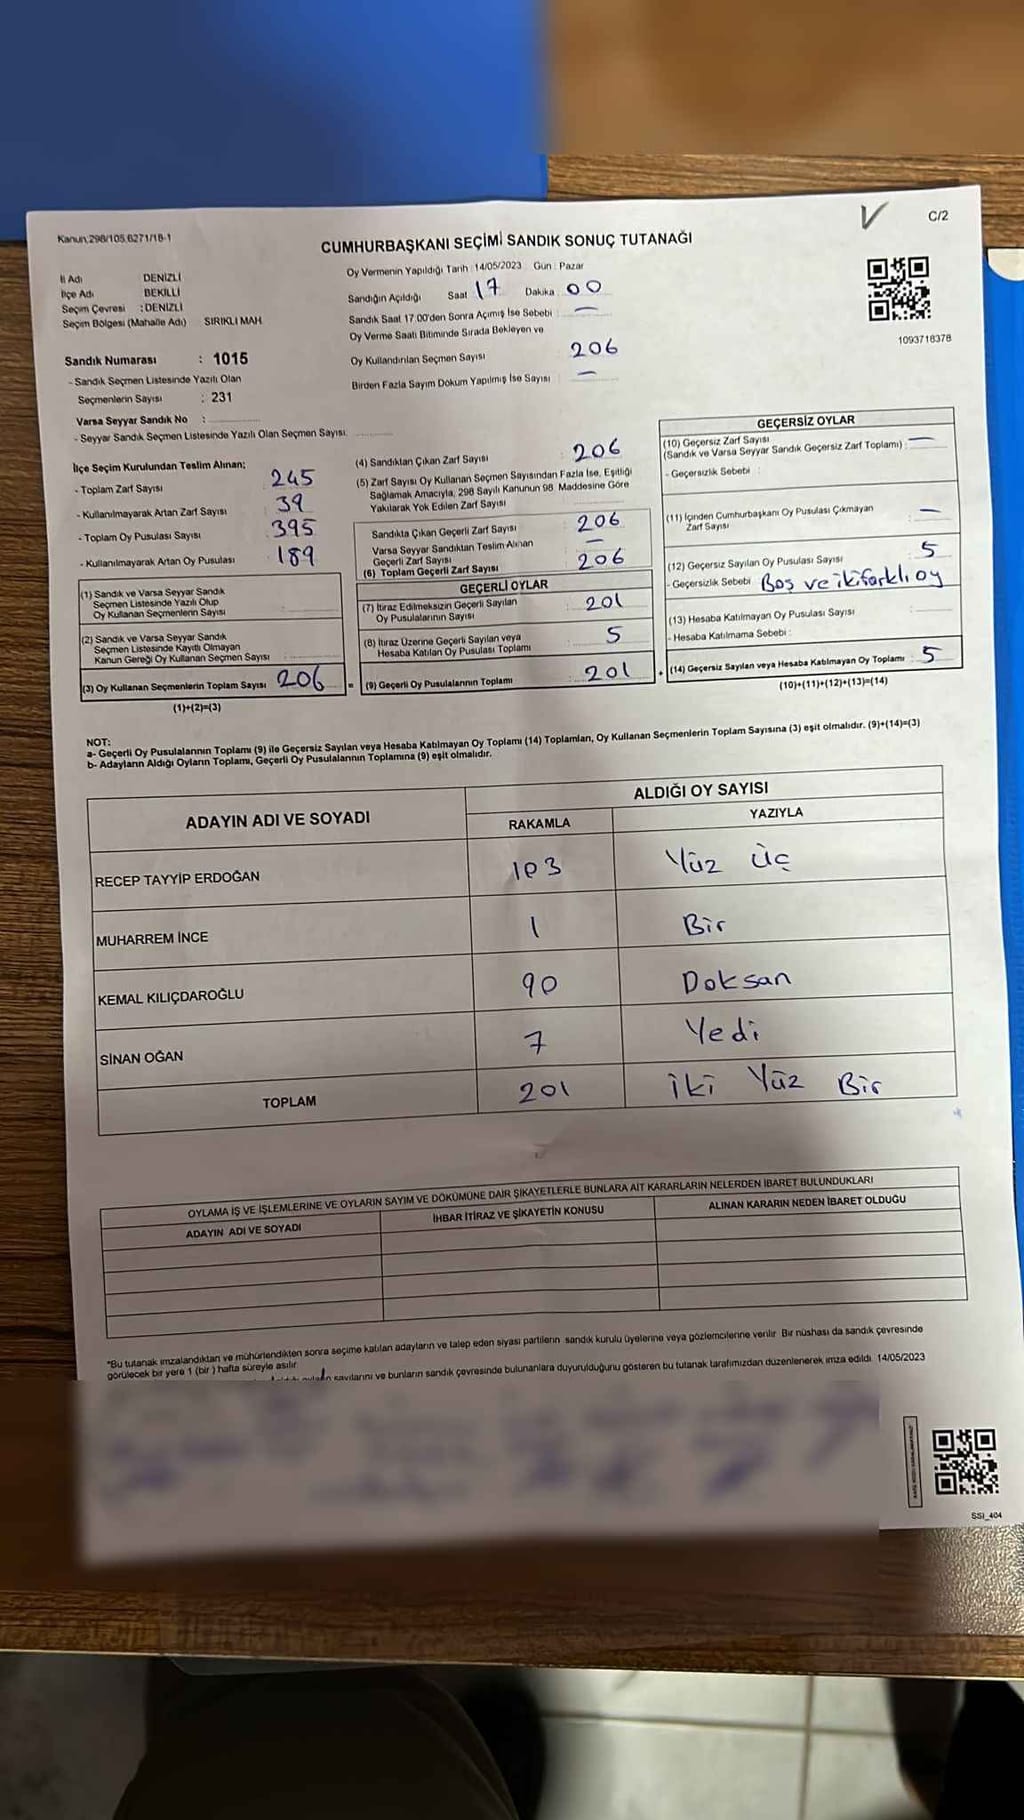 Kanun;298/105,6271/18-1
C/2
CUMHURBAŞKANI SEÇİMİ SANDIK SONUÇ TUTANAĞI
İl Adı DENİZLİ
İlçe Adı BEKİLLİ
Seçim Çevresi : DENİZLİ
Seçim Bölgesi (Mahalle Adı) SIRIKLI MAH.
Oy Vermenin Yapıldığı Tarih : 14/05/2023 Gün : Pazar
Sandığın Açıldığı Saat 17 Dakika 00
Sandık Saat 17:00'den Sonra Açımış İse Sebebi : —
Oy Verme Saati Bitiminde Sırada Bekleyen ve
Oy Kullandırılan Seçmen Sayısı 206
Birden Fazla Sayım Döküm Yapılmış İse Sayısı : —
1093718378
Sandık Numarası : 1015
- Sandık Seçmen Listesinde Yazılı Olan
Seçmenlerin Sayısı : 231
Varsa Seyyar Sandık No :
- Seyyar Sandık Seçmen Listesinde Yazılı Olan Seçmen Sayısı:
İlçe Seçim Kurulundan Teslim Alınan;
- Toplam Zarf Sayısı 245
- Kullanılmayarak Artan Zarf Sayısı 39
- Toplam Oy Pusulası Sayısı 395
- Kullanılmayarak Artan Oy Pusulası 189
(1) Sandık ve Varsa Seyyar Sandık
Seçmen Listesinde Yazılı Olup
Oy Kullanan Seçmenlerin Sayısı :
(2) Sandık ve Varsa Seyyar Sandık
Seçmen Listesinde Kayıtlı Olmayan
Kanun Gereği Oy Kullanan Seçmen Sayısı
(3) Oy Kullanan Seçmenlerin Toplam Sayısı 206 =
(1)+(2)=(3)
(4) Sandıktan Çıkan Zarf Sayısı 206
(5) Zarf Sayısı Oy Kullanan Seçmen Sayısından Fazla İse, Eşitliği
Sağlamak Amacıyla, 298 Sayılı Kanunun 98. Maddesine Göre
Yakılarak Yok Edilen Zarf Sayısı
Sandıkta Çıkan Geçerli Zarf Sayısı 206
Varsa Seyyar Sandıktan Teslim Alınan
Geçerli Zarf Sayısı —
(6) Toplam Geçerli Zarf Sayısı 206
GEÇERLİ OYLAR
(7) İtiraz Edilmeksizin Geçerli Sayılan
Oy Pusulalarının Sayısı : 201
(8) İtiraz Üzerine Geçerli Sayılan veya
Hesaba Katılan Oy Pusulası Toplamı : 5
(9) Geçerli Oy Pusulalarının Toplamı : 201 +
GEÇERSİZ OYLAR
(10) Geçersiz Zarf Sayısı
(Sandık ve Varsa Seyyar Sandık Geçersiz Zarf Toplamı) : —
- Geçersizlik Sebebi :
(11) İçinden Cumhurbaşkanı Oy Pusulası Çıkmayan
Zarf Sayısı : —
(12) Geçersiz Sayılan Oy Pusulası Sayısı : 5
- Geçersizlik Sebebi Boş ve iki farklı oy
(13) Hesaba Katılmayan Oy Pusulası Sayısı :
- Hesaba Katılmama Sebebi :
(14) Geçersiz Sayılan veya Hesaba Katılmayan Oy Toplamı : 5
(10)+(11)+(12)+(13)=(14)
NOT:
a- Geçerli Oy Pusulalarının Toplamı (9) ile Geçersiz Sayılan veya Hesaba Katılmayan Oy Toplamı (14) Toplamları, Oy Kullanan Seçmenlerin Toplam Sayısına (3) eşit olmalıdır. (9)+(14)=(3)
b- Adayların Aldığı Oyların Toplamı, Geçerli Oy Pusulalarının Toplamına (9) eşit olmalıdır.
ADAYIN ADI VE SOYADI
ALDIĞI OY SAYISI
RAKAMLA YAZIYLA
RECEP TAYYİP ERDOĞAN 103 Yüz Üç
MUHARREM İNCE 1 Bir
KEMAL KILIÇDAROĞLU 90 Doksan
SİNAN OĞAN 7 Yedi
TOPLAM 201 İki Yüz Bir
OYLAMA İŞ VE İŞLEMLERİNE VE OYLARIN SAYIM VE DÖKÜMÜNE DAİR ŞİKAYETLERLE BUNLARA AİT KARARLARIN NELERDEN İBARET BULUNDUKLARI
ADAYIN ADI VE SOYADI İHBAR İTİRAZ VE ŞİKAYETİN KONUSU ALINAN KARARIN NEDEN İBARET OLDUĞU
*Bu tutanak imzalandıktan ve mühürlendikten sonra seçime katılan adayların ve talep eden siyasi partilerin sandık kurulu üyelerine veya gözlemcilerine verilir. Bir nüshası da sandık çevresinde
görülecek bir yere 1 (bir) hafta süreyle asılır.
sayılarını ve bunların sandık çevresinde bulunanlara duyurulduğunu gösteren bu tutanak tarafımızdan düzenlenerek imza edildi. 14/05/2023
SSI_404